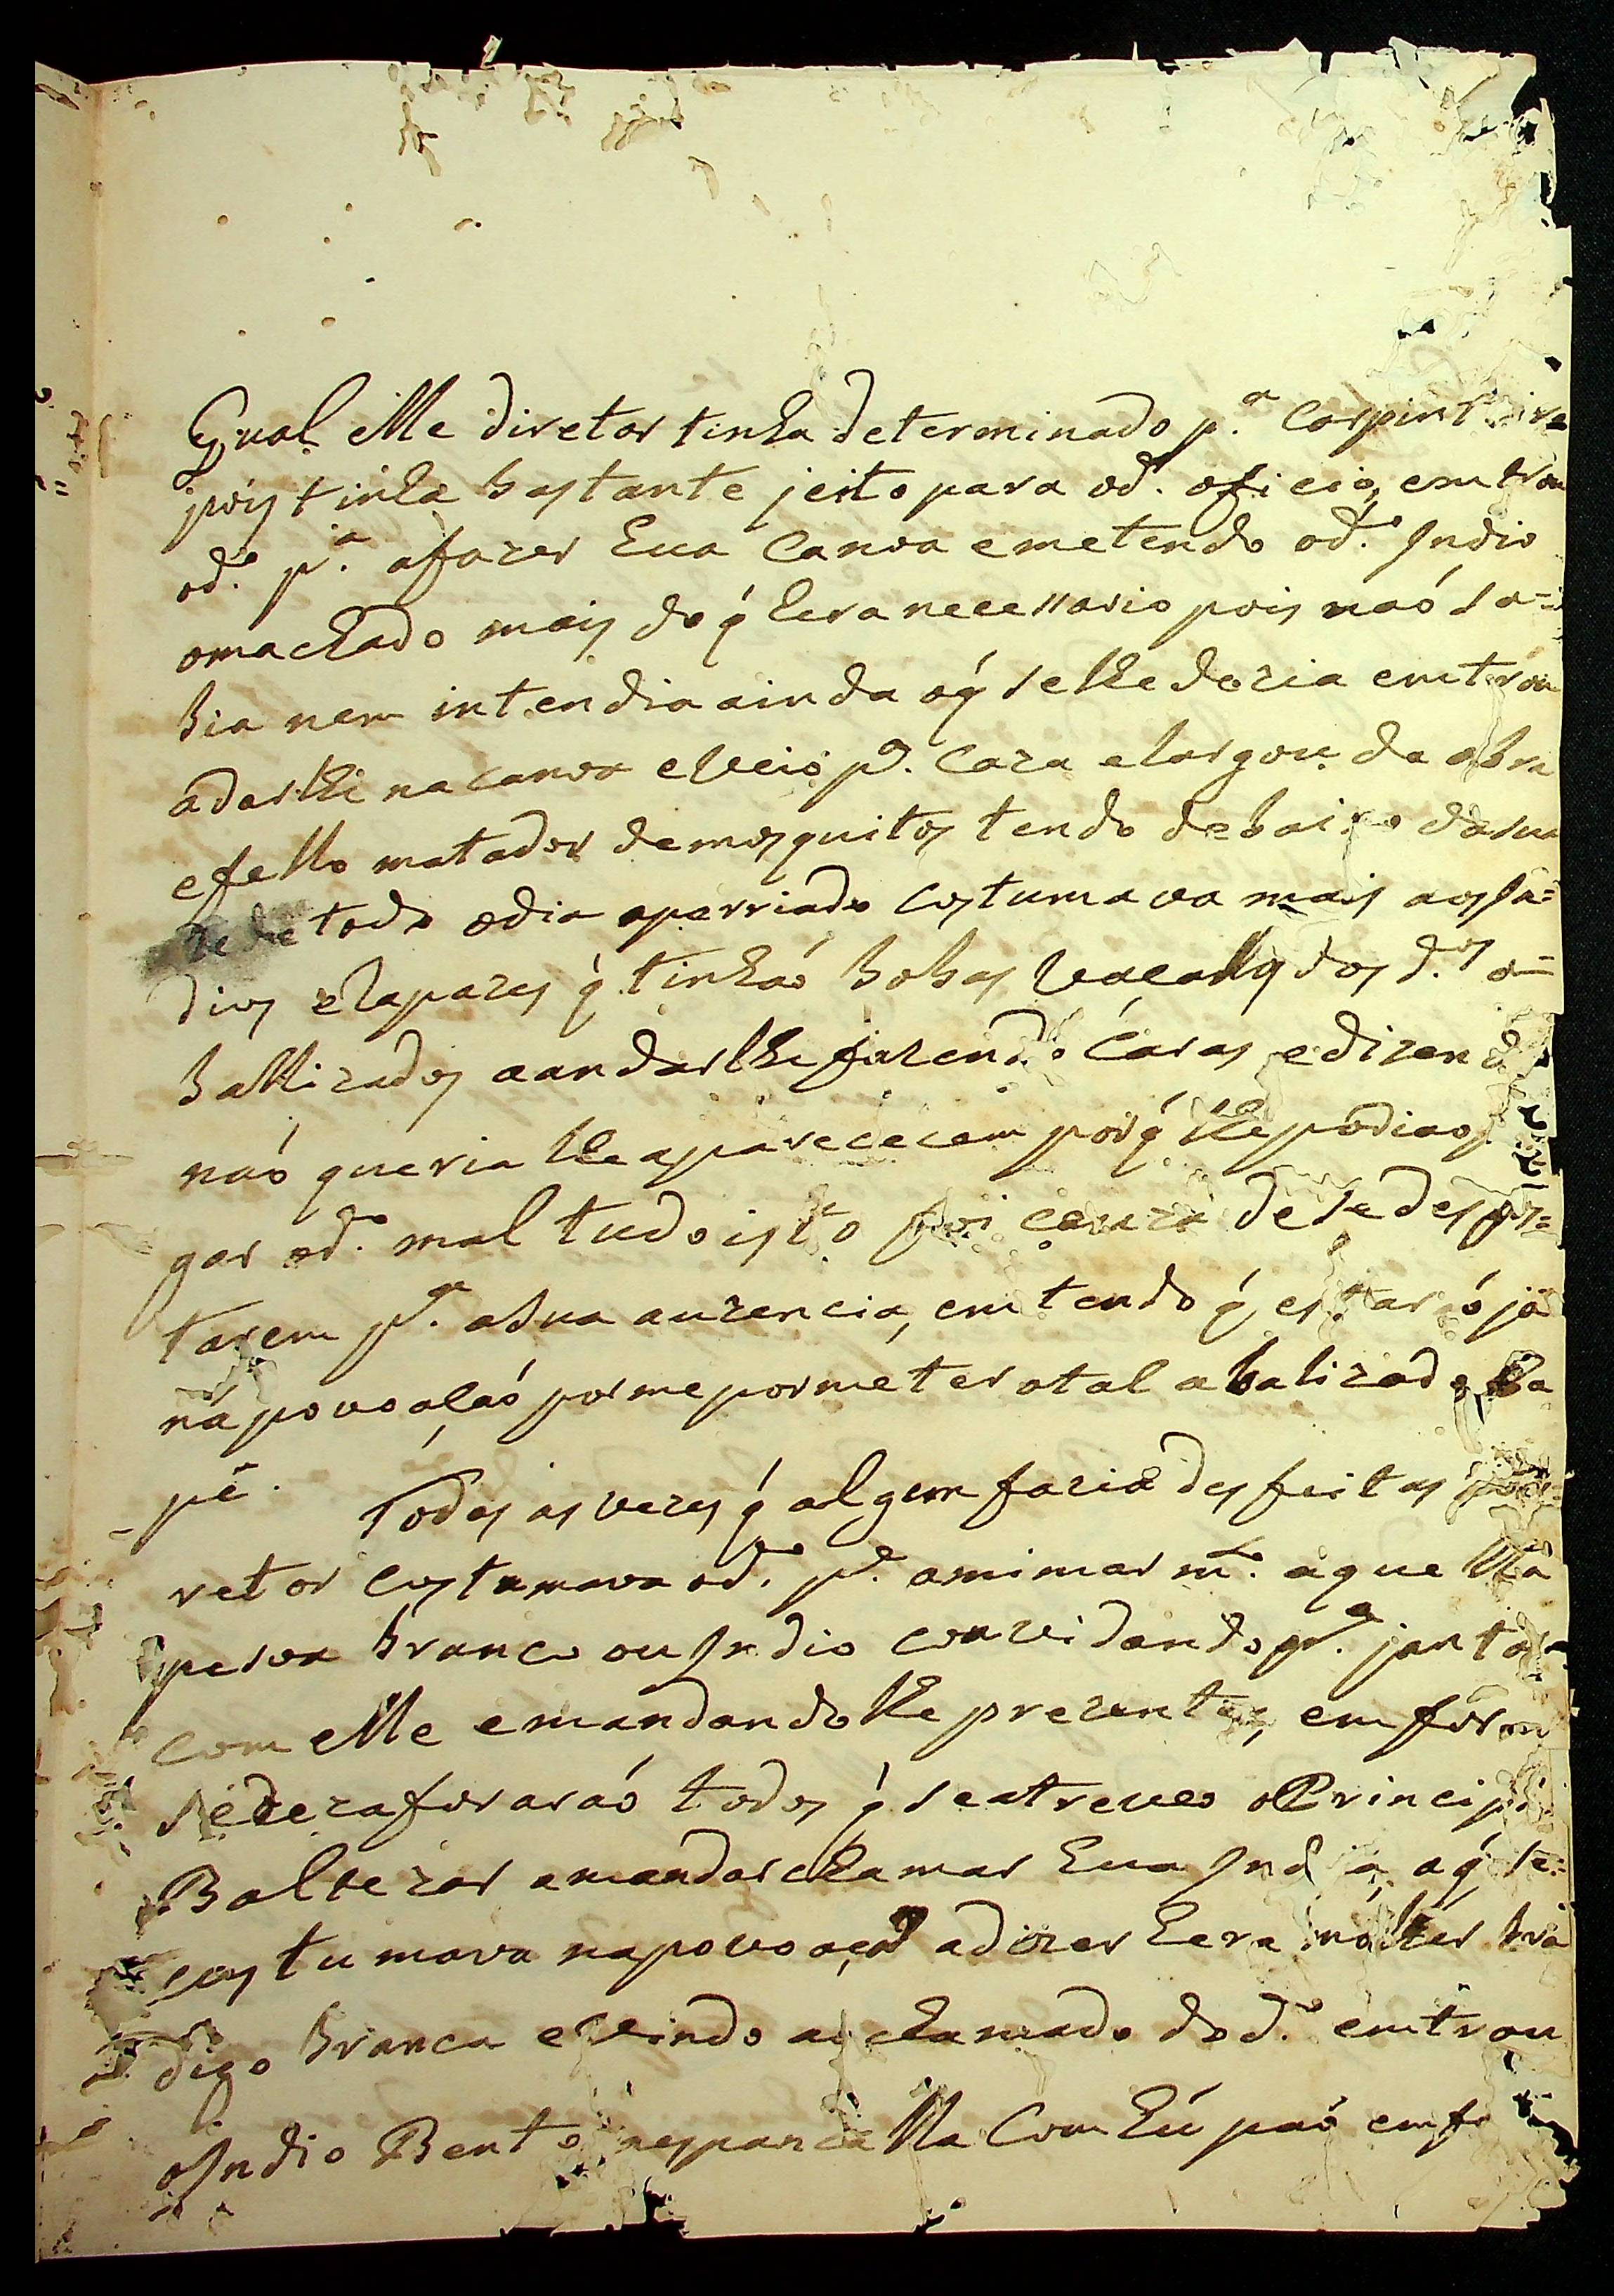 Qual elle diretor tinha determinado p.ª Carpint.eiro
pois tinha bastante jeito para od.º oficio, emtrou
od.º p.ª afazer hua Canoa emetendo od.º Indio
omachado mais do q́ hera necessario pois naó sa=
bia nem intendia ainda oq́ selhe dezia emtrou
adarlhe na canoa eveio p.ª caza elargou da obra
efello matador demosquitos tendo debaixo dasua
rede todo odia aperriado costumava mais aos In=
dios eRapazes q́ tinhaó bobas d.os a=
balizados aandarlhe fazendo caras edizendo
naó queria lhe aparececem porq́ lhe podiaó p
gar od.º mal tudo isto foi cauza desedespi=
tarem p.ª asua auzencia, emtendo q́ estaraó já
ná povoaçaó pormeprometer otal abalizado Ra
pé.
Todas as vezes q́ algem fazia desfeitas
retor costumava od.º p.e amimar m.to aquella
pesoa branco ou Indio convidando p.ª jantar
com elle emandandolhe prezentes, emforma
sedezaforaraó todos q́ seatreveo oPrincipal
Baltezar amandar chamar hua India aq́ se=
costumava napovoaçaó adizer hera molher bra
digo branca evindo aochamado dod.º emtrou
oIndio Bento aespancalla Com hú páo emf